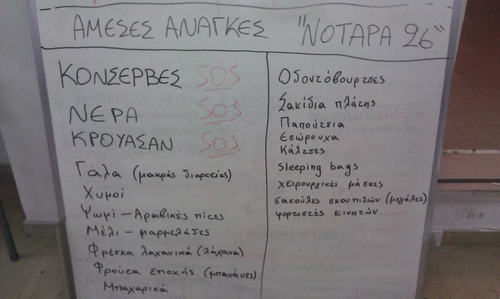 ΑΜΕΣΕΣ ΑΝΑΓΚΕΣ "ΝΟΤΑΡΑ 26"
ΚΟΝΣΕΡΒΕΣ SOS
ΝΕΡΑ SOS
ΚΡΟΥΑΣΑΝ SOS
Γάλα (μακράς διαρκείας)
Χυμοί
Ψωμί - Αραβικές πίτες
Μέλι - μαρμελάδες
Φρέσκα λαχανικά (λάχανα)
Φρούτα εποχής (μπανάνες)
Μπαχαρικά
Οδοντόβουρτσες
Σακίδια πλάτης
Παπούτσια
Εσώρουχα
Κάλτσες
Sleeping bags
χειρουργικές μάσκες
σακούλες σκουπιδιών (μεγάλες)
φορτιστές κινητών